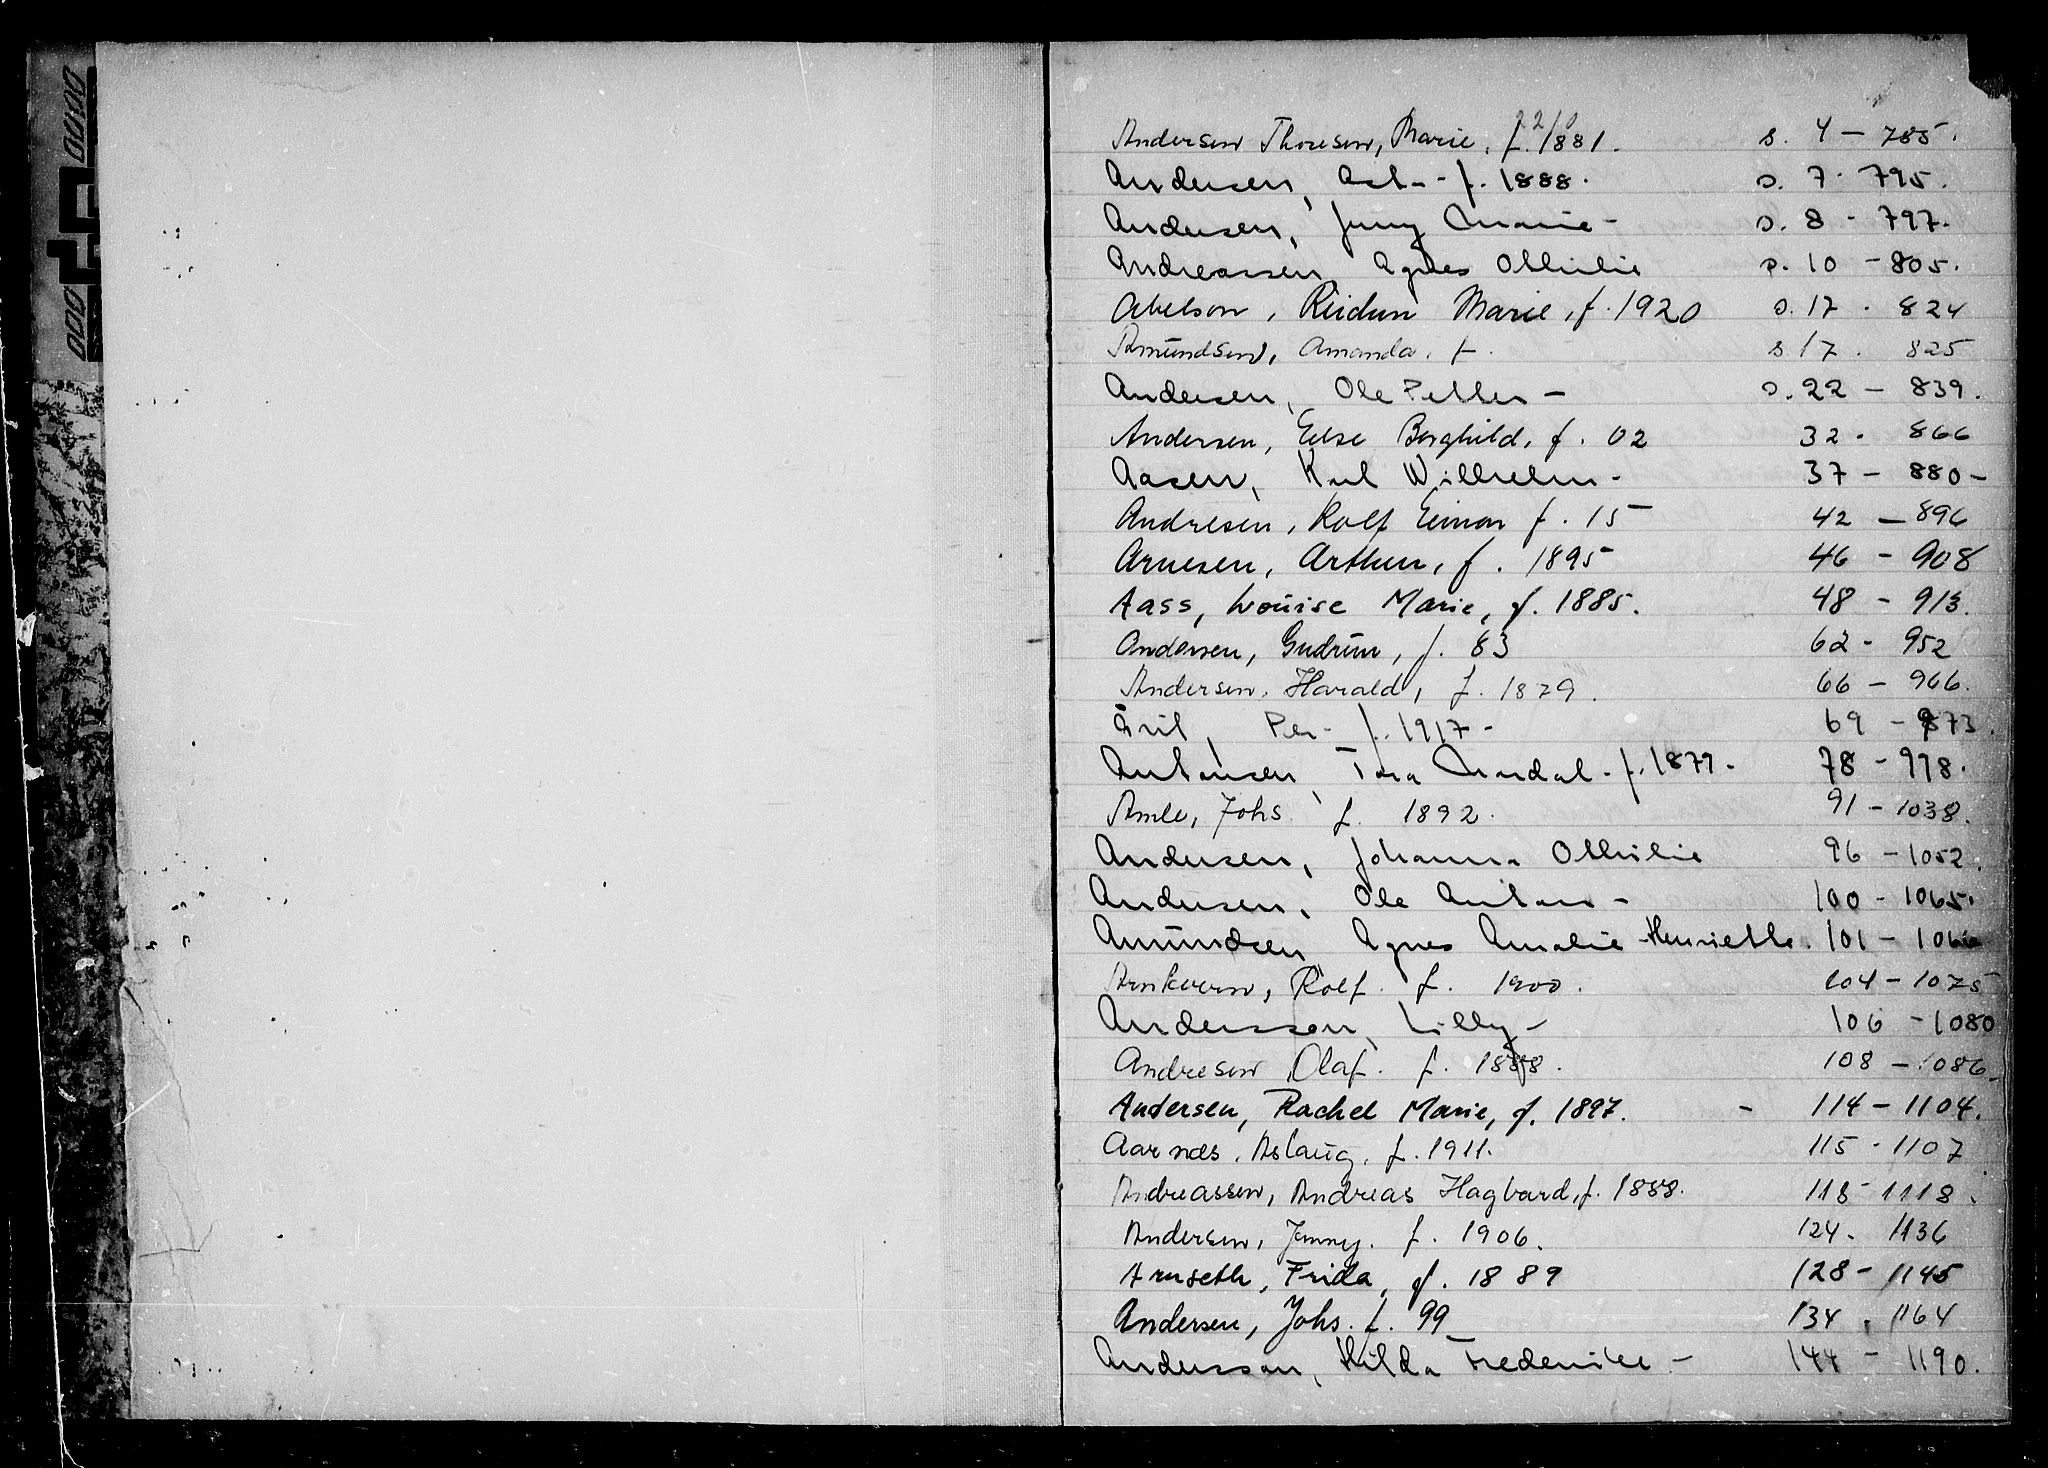 Andersen Thoresen, Marie, f. 2/10 1881. s. 4 – 785.
Andersen, Ask - f. 1888. s. 7 - 795.
Andersen, Jenny Marie - s. 8 - 797.
Andreassen Agnes Othilie s. 10 - 805.
Abelson, Reidun Marie, f. 1920 s. 17 . 824
Amundsen, Amanda, f. s. 17 . 825
Andersen, Ole Petter – s. 22 – 839.
Andersen, Else Borghild, f. 02 32 . 866
Aasen, Karl Wilhelm - 37 – 880 –
Andresen, Rolf Einar f. 15 42 – 896
Arnesen, Arthur, f. 1895 46 - 908
Aass, Louise Marie, f. 1885. 48 - 913.
Andersen, Gudrun, f. 83 62 - 952
Andersen, Harald, f. 1879. 66 – 966.
Per - f. 1917 - 69 - 973.
Antonsen, Tora f. 1879. 78 - 998.
Amle, Johs f. 1892. 91 - 1038.
Andersen, Johanna Othilie 96 - 1052.
Andersen, Ole Anton - 100 - 1065.
Amundsen Agnes Amalie Henriette. 101 - 1066
Arnkværn, Rolf. f. 1900. 104 - 1075
Andersson, Lilly - 106 - 1080
Andresen Olaf. f. 1888. 108 - 1086.
Andersen, Rachel Marie, f. 1897. - 114 - 1104.
Aarnæs, Aslaug. f. 1911. 115 - 1107
Andreassen, Andreas Hagbard, f. 1888. 118 - 1118.
Andersen, Jenny. f. 1906. 124 . 1136
Arnseth, Frida, f. 1889 128 - 1145
Andersen, Johs. f. 99 134 . 1164
Andersson, Hilda Frederikke - 144 - 1190.